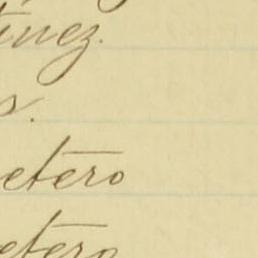 tínez.
s.
etero
etero